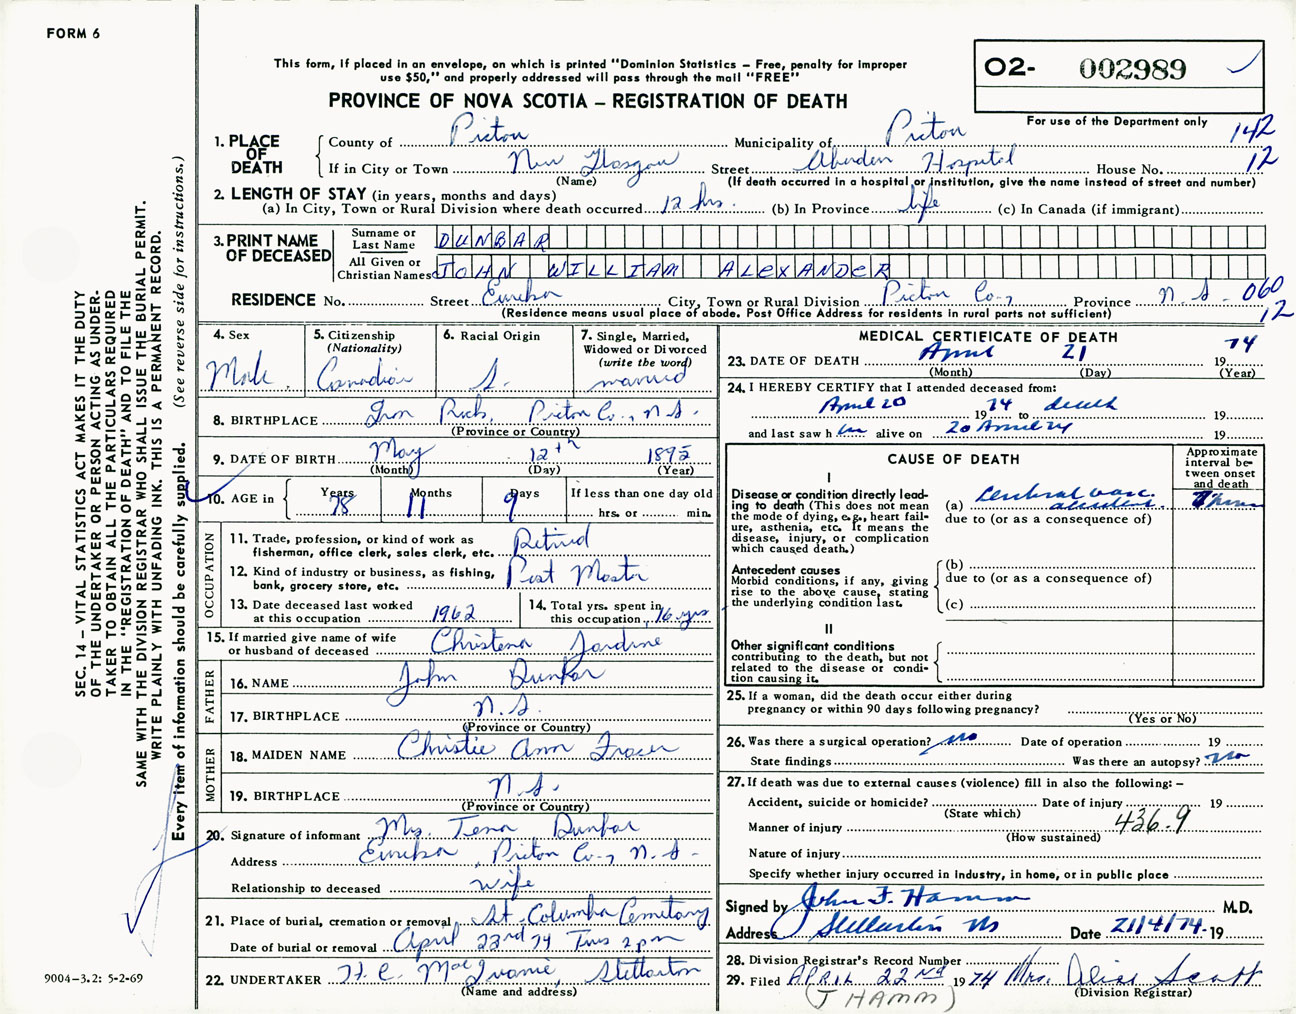 FORM 6
This form, if placed in an envelope, on which is printed "Dominion Statistics – Free, penalty for improper
use $50," and properly addressed will pass through the mail "FREE"
PROVINCE OF NOVA SCOTIA – REGISTRATION OF DEATH
O2- 002989
For use of the Department only
142
12
1. PLACE OF DEATH
County of Pictou Municipality of Pictou
If in City or Town New Glasgow Street Aberdeen Hospital House No.
(Name) (If death occurred in a hospital or institution, give the name instead of street and number)
2. LENGTH OF STAY (in years, months and days)
(a) In City, Town or Rural Division where death occurred 12 hrs. (b) In Province life (c) In Canada (if immigrant)
3. PRINT NAME OF DECEASED
Surname or Last Name DUNBAR
All Given or Christian Names JOHN WILLIAM ALEXANDER
RESIDENCE No. Street Eureka City, Town or Rural Division Pictou Co., Province N.S. 060
(Residence means usual place of abode. Post Office Address for residents in rural parts not sufficient) 12
SEC. 14 – VITAL STATISTICS ACT MAKES IT THE DUTY
OF THE UNDERTAKER OR PERSON ACTING AS UNDER-
TAKER TO OBTAIN ALL THE PARTICULARS REQUIRED
IN THE "REGISTRATION OF DEATH" AND TO FILE THE
SAME WITH THE DIVISION REGISTRAR WHO SHALL ISSUE THE BURIAL PERMIT.
WRITE PLAINLY WITH UNFADING INK. THIS IS A PERMANENT RECORD.
Every item of information should be carefully supplied. (See reverse side for instructions.)
4. Sex
Male
5. Citizenship
(Nationality)
Canadian
6. Racial Origin
S.
7. Single, Married,
Widowed or Divorced
(write the word)
married
8. BIRTHPLACE Iron Rock, Pictou Co., N.S.
(Province or Country)
9. DATE OF BIRTH May 12th 1895
(Month) (Day) (Year)
10. AGE in Years 78 Months 11 Days 9 If less than one day old
hrs. or min.
OCCUPATION
11. Trade, profession, or kind of work as
fisherman, office clerk, sales clerk, etc. Retired
12. Kind of industry or business, as fishing,
bank, grocery store, etc. Post Master
13. Date deceased last worked
at this occupation 1962
14. Total yrs. spent in
this occupation 16 yrs
15. If married give name of wife
or husband of deceased Christena Jardine
FATHER
16. NAME John Dunbar
17. BIRTHPLACE N.S.
(Province or Country)
MOTHER
18. MAIDEN NAME Christie Ann Fraser
19. BIRTHPLACE N.S.
(Province or Country)
20. Signature of informant Mrs. Tena Dunbar
Address Eureka, Pictou Co., N.S.
Relationship to deceased wife
21. Place of burial, cremation or removal St. Columba Cemetary
Date of burial or removal April 23rd 74 Tues 2 pm
22. UNDERTAKER H.C. MacQuarrie, Stellarton
(Name and address)
9004-3.2: 5-2-69
MEDICAL CERTIFICATE OF DEATH
23. DATE OF DEATH April 21 19 74
(Month) (Day) (Year)
24. I HEREBY CERTIFY that I attended deceased from:
April 20 19 74 to death 19
and last saw h im alive on 20 April 74 19
CAUSE OF DEATH
Approximate
interval be-
tween onset
and death
I
Disease or condition directly lead-
ing to death (This does not mean
the mode of dying, e.g., heart fail-
ure, asthenia, etc. It means the
disease, injury, or complication
which caused death.)
(a) Cerebral vasc. accident
due to (or as a consequence of)
Antecedent causes
Morbid conditions, if any, giving
rise to the above cause, stating
the underlying condition last.
(b)
due to (or as a consequence of)
(c)
II
Other significant conditions
contributing to the death, but not
related to the disease or condi-
tion causing it.
25. If a woman, did the death occur either during
pregnancy or within 90 days following pregnancy?
(Yes or No)
26. Was there a surgical operation? no Date of operation 19
State findings Was there an autopsy? no
27. If death was due to external causes (violence) fill in also the following: –
Accident, suicide or homicide? Date of injury 19
(State which)
Manner of injury 436.9
(How sustained)
Nature of injury
Specify whether injury occurred in industry, in home, or in public place
Signed by John F. Hamm M.D.
Address Stellarton NS Date 21/4/74 19
28. Division Registrar's Record Number
29. Filed APRIL 22ND 19 74 Mrs. Alice Scott
(Division Registrar)
(J HAMM)